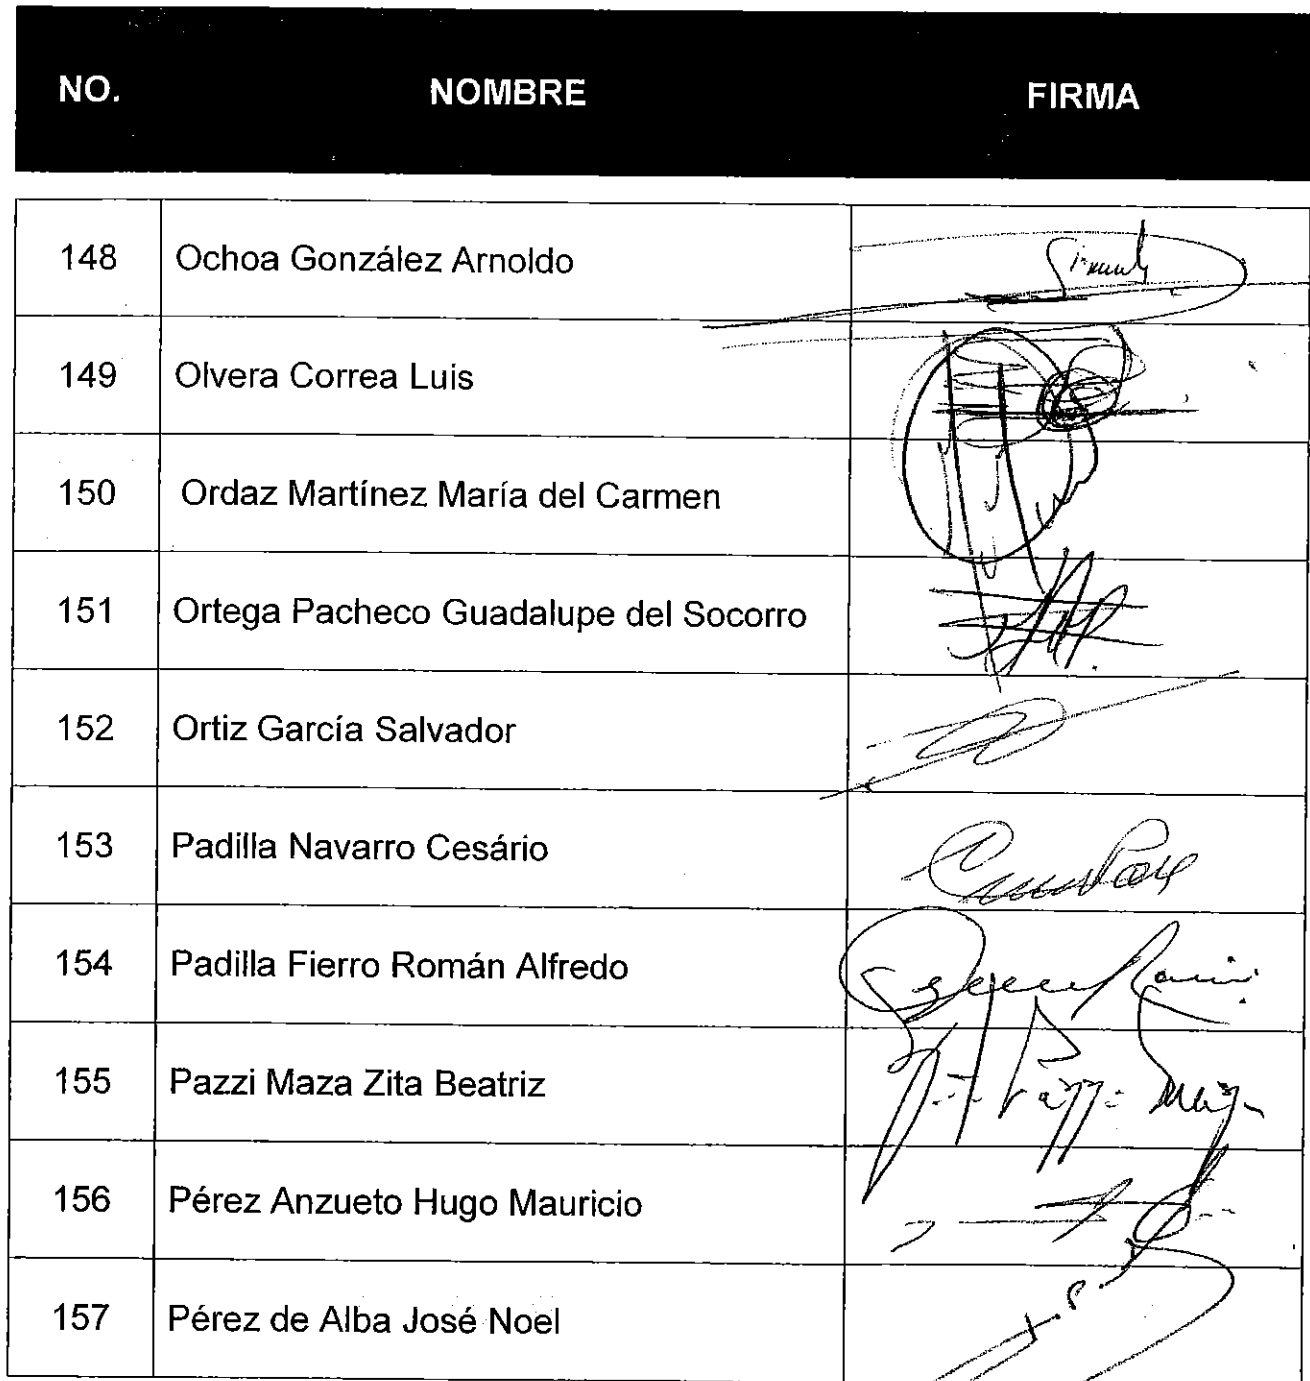 NO. NOMBRE FIRMA
148 Ochoa González Arnoldo
149 Olvera Correa Luis
150 Ordaz Martínez María del Carmen
151 Ortega Pacheco Guadalupe del Socorro
152 Ortiz García Salvador
153 Padilla Navarro Cesário
154 Padilla Fierro Román Alfredo
155 Pazzi Maza Zita Beatriz
156 Pérez Anzueto Hugo Mauricio
157 Pérez de Alba José Noel